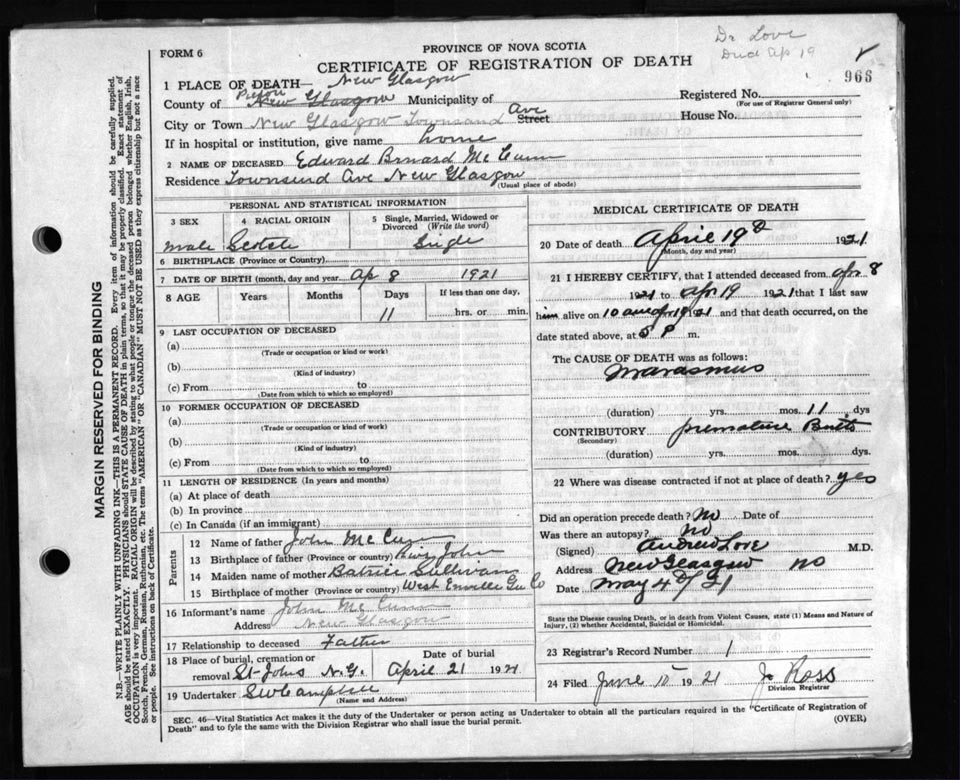 Dr Love
Died Ap 19
FORM 6
PROVINCE OF NOVA SCOTIA
CERTIFICATE OF REGISTRATION OF DEATH
966
1 PLACE OF DEATH— New Glasgow
County of Pictou New Glasgow Municipality of
Registered No.
(For use of Registrar General only)
City or Town New Glasgow Townsand Ave Street
House No.
If in hospital or institution, give name home
2 NAME OF DECEASED Edward Brnard McCunn
Residence Townsend Ave New Glasgow
(Usual place of abode)
PERSONAL AND STATISTICAL INFORMATION
3 SEX
male
4 RACIAL ORIGIN
Scotch
5 Single, Married, Widowed or Divorced (Write the word)
Single
6 BIRTHPLACE (Province or Country)
7 DATE OF BIRTH (month, day and year) Ap 8 1921
8 AGE Years Months Days If less than one day,
11 hrs. or min.
9 LAST OCCUPATION OF DECEASED
(a)
(Trade or occupation or kind or work)
(b)
(Kind of industry)
(c) From to
(Date from which to which so employed)
10 FORMER OCCUPATION OF DECEASED
(a)
(Trade or occupation or kind of work)
(b)
(Kind of industry)
(c) From to
(Date from which to which so employed)
11 LENGTH OF RESIDENCE (In years and months)
(a) At place of death
(b) In province
(c) In Canada (if an immigrant)
Parents
12 Name of father John McCunn
13 Birthplace of father (Province or country) John
14 Maiden name of mother Batrice Sullivan
15 Birthplace of mother (Province or country) West Enville Co
16 Informant's name John McCunn
Address New Glasgow
17 Relationship to deceased Father
18 Place of burial, cremation or removal St Johns N.G.
Date of burial
April 21 1921
19 Undertaker SW Campbell
(Name and Address)
MEDICAL CERTIFICATE OF DEATH
20 Date of death April 19 1921
(Month, day and year)
21 I HEREBY CERTIFY, that I attended deceased from Apr 8
1921 to Apr 19 1921 that I last saw
him alive on 10 am Apr 19 1921 and that death occurred, on the
date stated above, at 5 P m.
The CAUSE OF DEATH was as follows:
Marasmus
(duration) yrs. mos. 11 dys
CONTRIBUTORY premature Birth
(Secondary)
(duration) yrs. mos. dys
22 Where was disease contracted if not at place of death? yes
Did an operation precede death? No Date of
Was there an autopsy? No
(Signed) Andrew Love M.D.
Address New Glasgow NS
Date May 4 21
State the Disease causing Death, or in death from Violent Causes, state (1) Means and Nature of
Injury, (2) whether Accidental, Suicidal or Homicidal.
23 Registrar's Record Number 1
24 Filed June 10 1921 J. Ross
Division Registrar
SEC. 46—Vital Statistics Act makes it the duty of the Undertaker or person acting as Undertaker to obtain all the particulars required in the "Certificate of Registration of
Death" and to fyle the same with the Division Registrar who shall issue the burial permit.
(OVER)
MARGIN RESERVED FOR BINDING
N.B.—WRITE PLAINLY WITH UNFADING INK.—THIS IS A PERMANENT RECORD. Every item of information should be carefully supplied.
AGE should be stated EXACTLY. PHYSICIANS should STATE CAUSE OF DEATH in plain terms, so that it may be properly classified. Exact statement of
OCCUPATION is very important. RACIAL ORIGIN will be described by stating to what people or tongue the deceased person belonged whether English, Irish,
Scotch, French, German, Russian, Ruthenian, etc. The terms "AMERICAN" or "CANADIAN" MUST NOT BE USED as they express citizenship but not a race
or people. See instructions on back of Certificate.